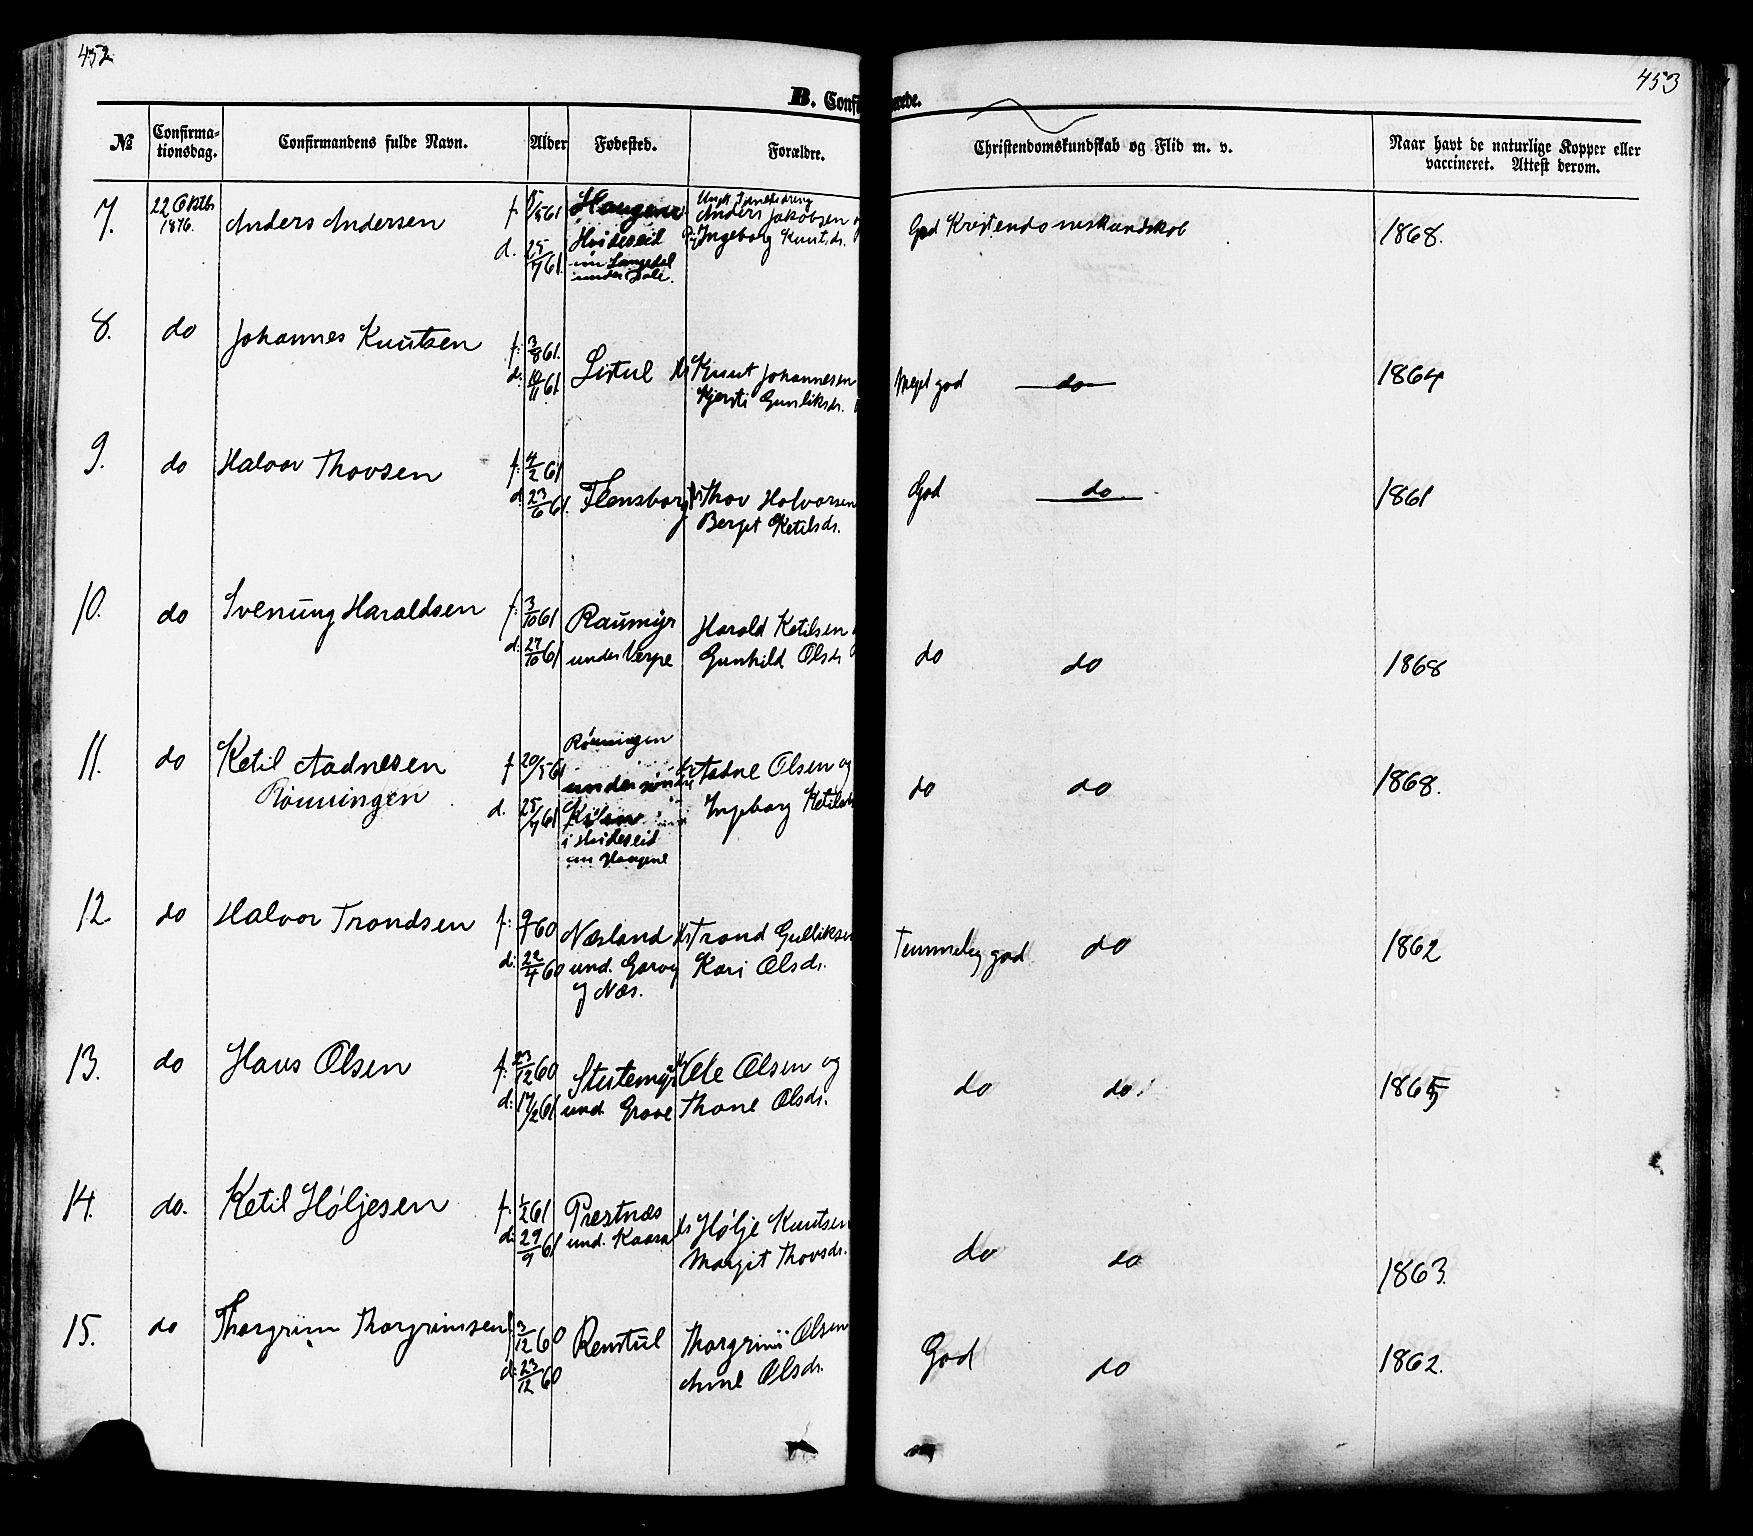 452
453
B. Conf
rede.
№
Confirma-
tionsdag.
Confirmandens fulde Navn.
Alder
Fødested.
Forældre.
Christendomskundskab og Flid m. v.
Naar havt de naturlige Kopper eller
vaccineret. Attest derom.
7.
22 Oktb
1876.
Anders Andersen
f.
d. 25/7 61.
Haugene
Hvideseid
under
Anders Jakobsen
Ingeborg Knutsdr.
God Kristendomskundskab
1868.
8.
do
Johannes Knutsen
f: 3/8 61.
d: 10/11 61
Listul
Knut Johannesen
Kjersti Gunliksdr.
Meget god do
1864
9.
do
Halvor Thovsen
f: 4/2 61
d. 23/6 61.
Flensborg
Thov Halvorsen
Berget Ketilsdr.
God do.
1861
10.
do
Svenung Haraldsen
f. 3/10 61
d: 27/10 61
Raumyr
under Verpe
Harald Ketilsen
Gunhild Olsdr
do do
1868
11.
do
Ketil Aadnesen
Rönningen
f 20/5 61
d. 25/7 61
Rönningen
under
i Hvideseid
Aadne Olsen og
Ingeborg Ketilsdr
do do
1868.
12.
do
Halvor Trondsen
f: 9/4 60
d: 22/4 60
Næsland
und.
Næs.
Trond Gulliksen
Kari Olsdr.
Temmelig god do
1862
13.
do
Hans Olsen
f: 23/12 60
d. 17/2 61
und Grave
Ole Olsen og
Thone Olsdr.
do do.
1865
14.
do.
Ketil Höljesen
f. 1/2 61
d: 29/9 61
Prestnæs
und. Kaasa
Hølje Knutsen
Margit Thovsdr.
do do
1863.
15.
do
Thorgrim Thorgrimsen
f 3/12 60
d: 23/12 60
Remtul
Thorgrim Olsen
Anne Olsdr.
God do
1862.